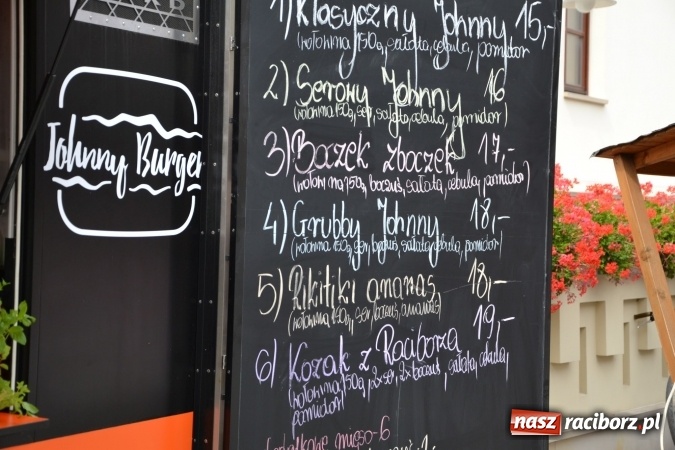 Johnny Burger
1) Klasyczny Johnny 15,-
(wołowina 150g, sałata, cebula, pomidor
2) Serowy Johnny 16
(wołowina 150g, ser, sałata, cebula, pomidor)
3) Boczek Zboczek 17,-
(wołowina 150g, boczuś, sałata, cebula, pomidor)
4) Grubby Johnny 18,-
(wołowina 150g, ser, boczuś, sałata, cebula, pomidor)
5) Rikitiki ananas 18,-
(wołowina 150g, ser, boczuś, ananas)
6) Kozak z Raciborza 19,-
(wołowina 150g, 2x ser, 2x boczuś, sałata, cebula,
pomidor)
mięso - 6
nasz raciborz.pl